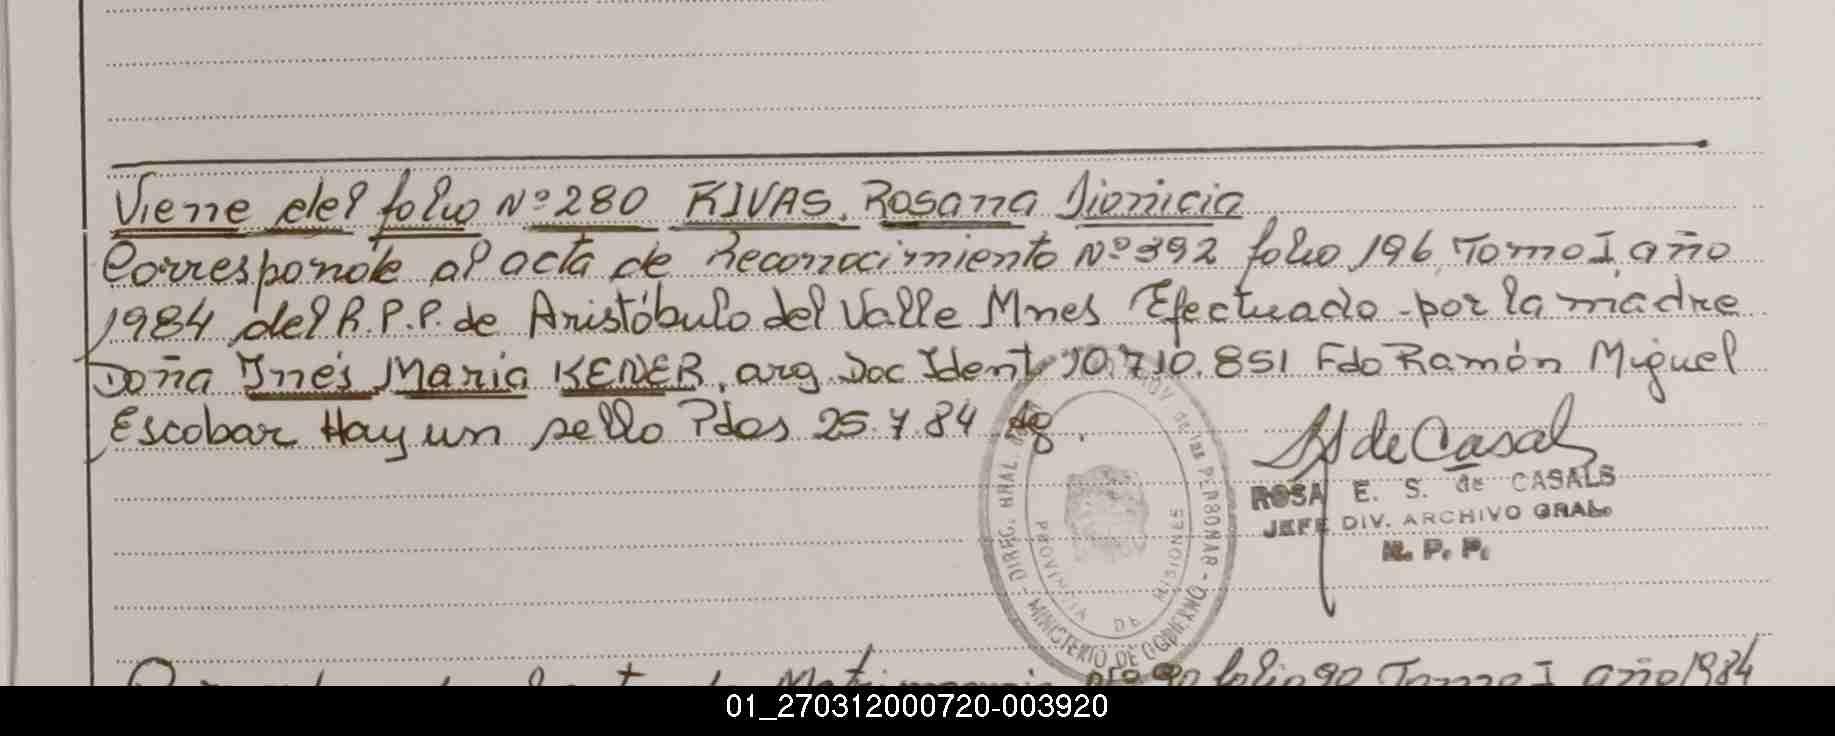 Viene del folio Nº 280 RIVAS, Rosana Dionicia
Corresponde al acta de Reconocimiento Nº 392 folio 196, Tomo I, año
1984 del R.P.P. de Aristóbulo del Valle Mnes Efectuado por la madre
Doña Inés Maria KENER, arg. Doc Ident 10.710.851 Fdo Ramón Miguel
Escobar Hay un sello Pdos 25.7.84
ROSA E. S. de CASALS
JEFE DIV. ARCHIVO GRAL.
R. P. P.
DIREC. GRAL. de las PERSONAS - MINISTERIO DE GOBIERNO
PROVINCIA DE MISIONES
folio 90 Tomo I año 1984
01_270312000720-003920